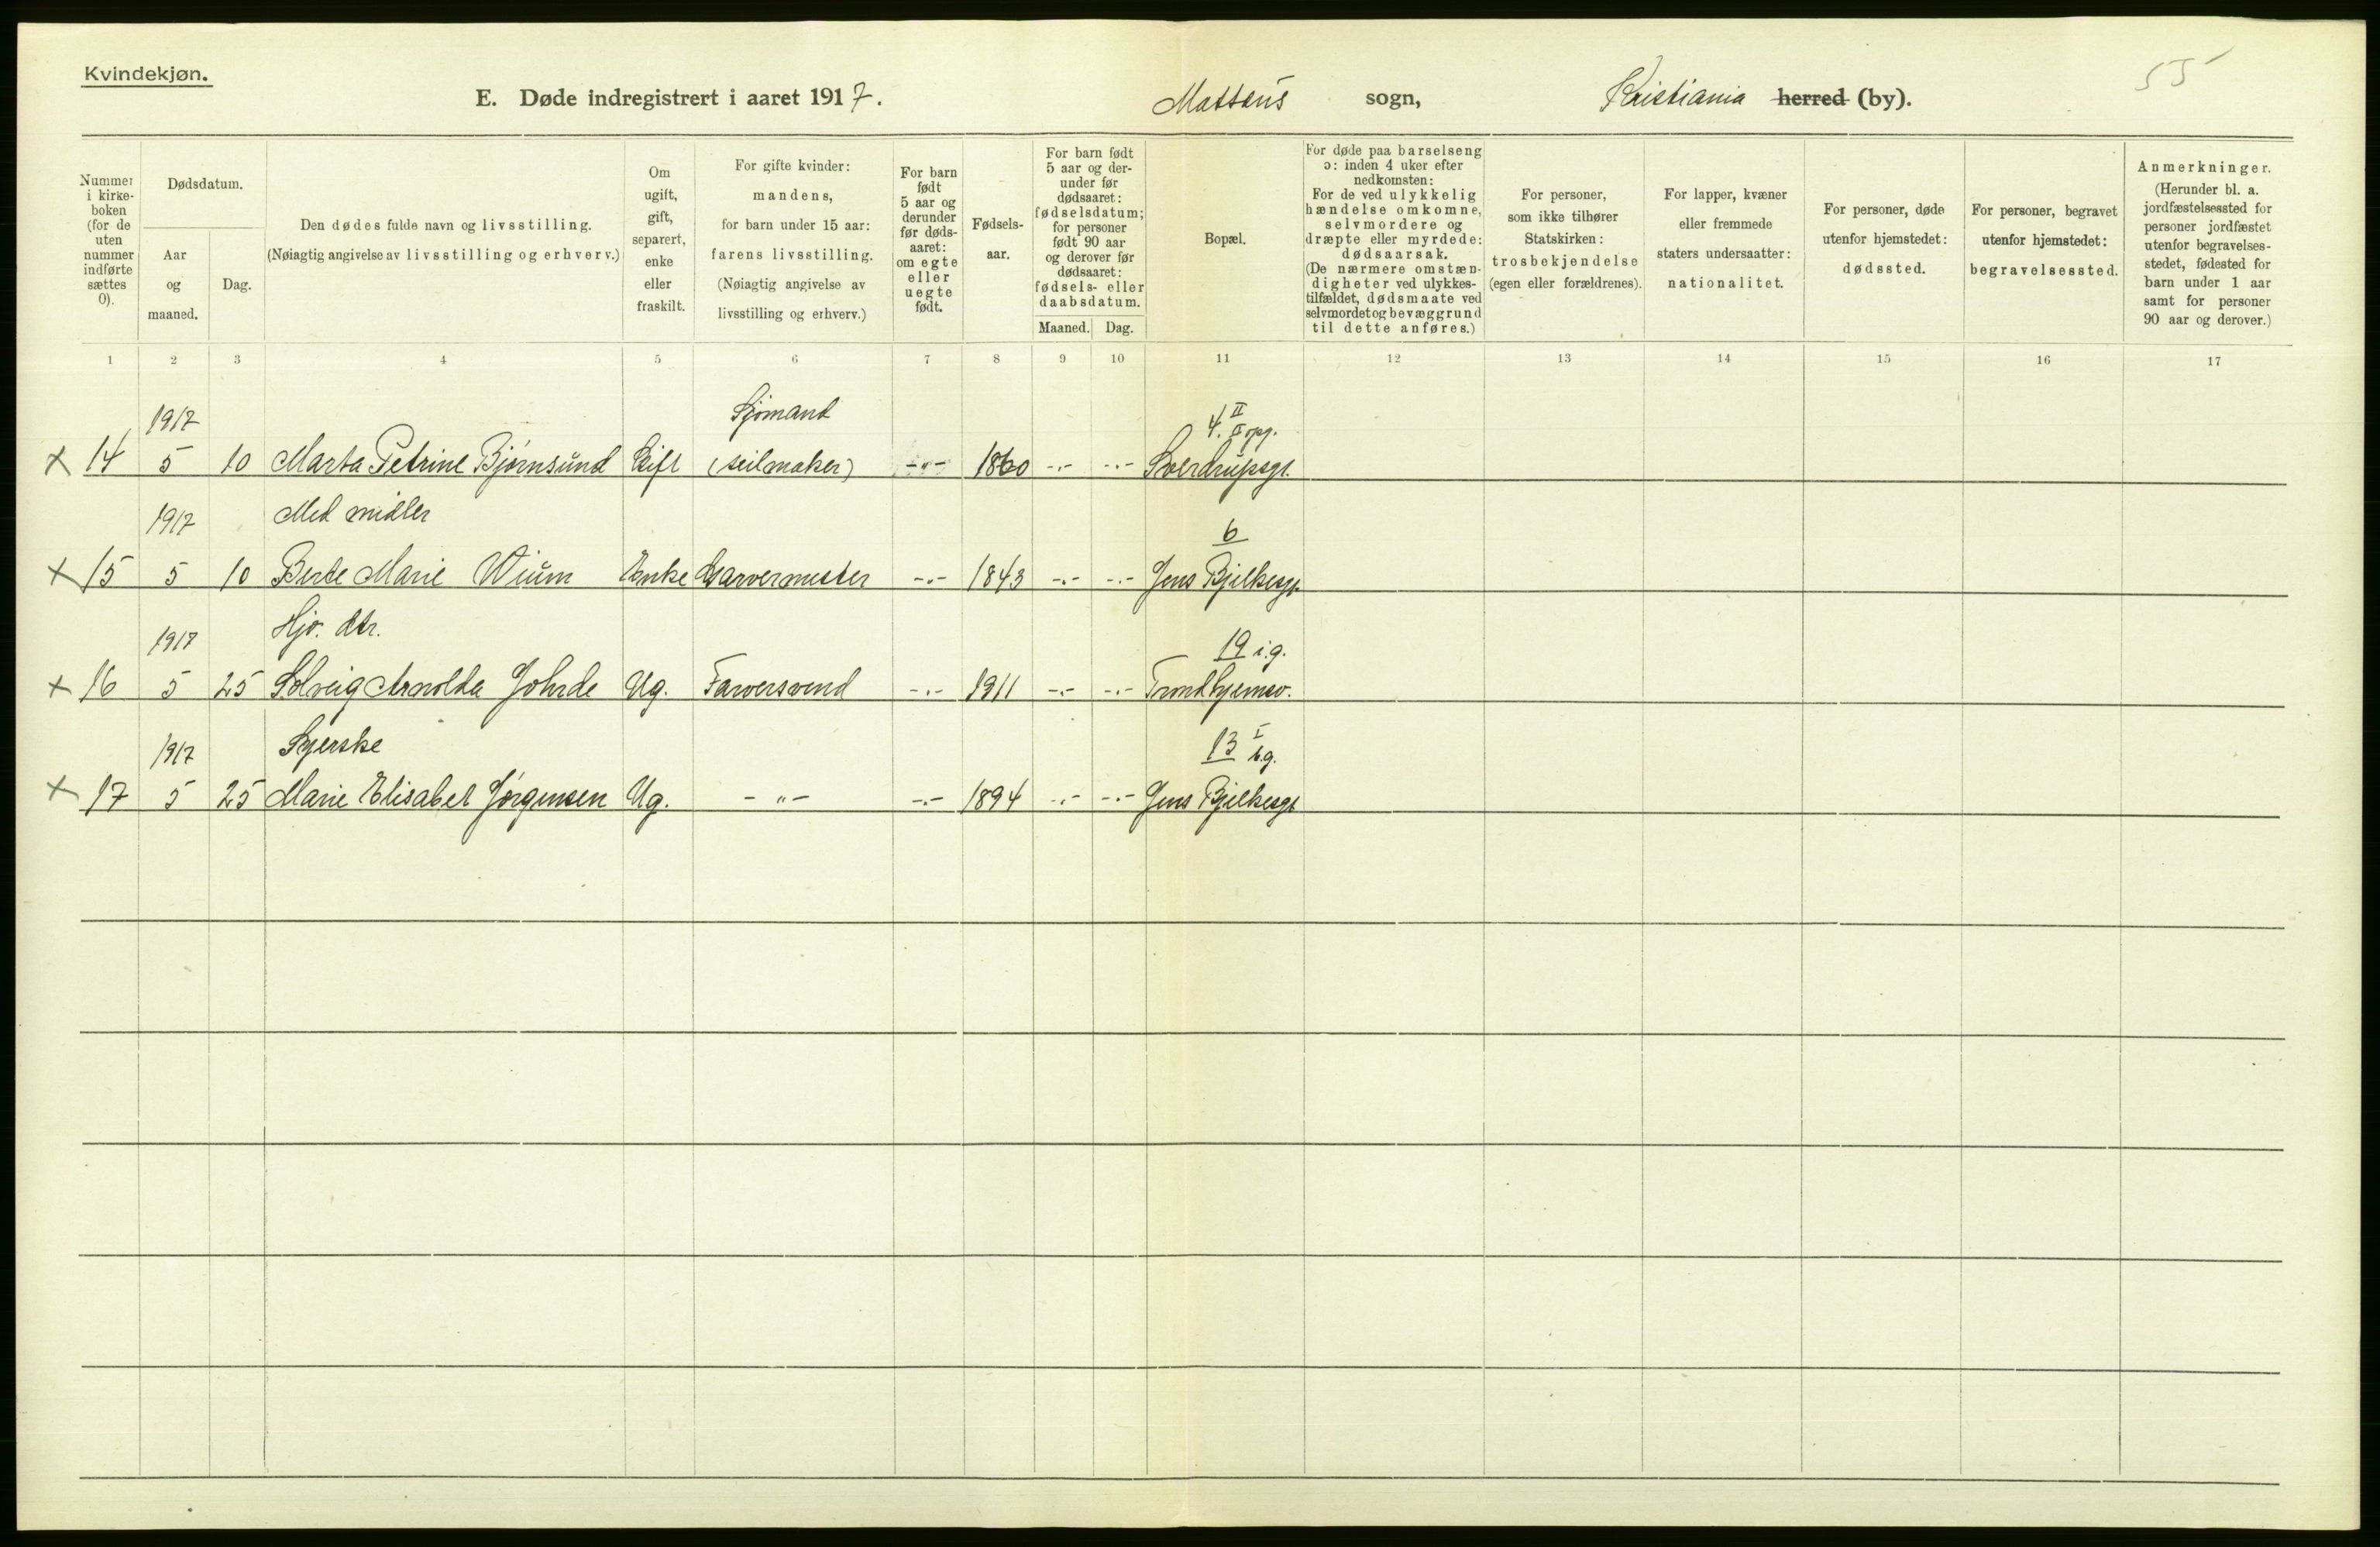 Kvindekjøn.
E. Døde indregistrert i aaret 1917. Matteus sogn, Kristiania herred (by).
55
Nummer i kirkeboken (for de uten nummer indførte sættes 0).
Dødsdatum.
Aar og maaned.
Dag.
Den dødes fulde navn og livsstilling.
(Nøiagtig angivelse av livsstilling og erhverv.)
Om ugift, gift, separert, enke eller fraskilt.
For gifte kvinder: mandens, for barn under 15 aar: farens livsstilling. (Nøiagtig angivelse av livsstilling og erhverv.)
For barn født 5 aar og derunder før dødsaaret: om egte eller uegte født.
Fødselsaar.
For barn født 5 aar og derunder før dødsaaret: fødselsdatum; for personer født 90 aar og derover før dødsaaret: fødsels- eller daabsdatum.
Maaned. Dag.
Bopæl.
For døde paa barselseng ɔ: inden 4 uker efter nedkomsten: For de ved ulykkelig hændelse omkomne, selvmordere og dræpte eller myrdede: dødsaarsak. (De nærmere omstændigheter ved ulykkestilfældet, dødsmaate ved selvmordet og bevæggrund til dette anføres.)
For personer, som ikke tilhører Statskirken: trosbekjendelse (egen eller forældrenes).
For lapper, kvæner eller fremmede staters undersaatter: nationalitet.
For personer, døde utenfor hjemstedet: dødssted.
For personer, begravet utenfor hjemstedet: begravelsessted.
Anmerkninger. (Herunder bl. a. jordfæstelsessted for personer jordfæstet utenfor begravelsesstedet, fødested for barn under 1 aar samt for personer 90 aar og derover.)
1 2 3 4 5 6 7 8 9 10 11 12 13 14 15 16 17
1917 Sjømand 4 II opg.
x 14 5 10 Marta Petrine Bjørnsund Gift (seilmaker) -"- 1860 -"- -"- Sverdrupsgt.
1917 Med midler 6
x 15 5 10 Berte Marie Wium Enke Garvermester -"- 1843 -"- -"- Jens Bjelkesgt.
1917 Hjv. dtr. 19 i.g.
x 16 5 25 Solveig Arnolda Johrde Ug. Farversvend -"- 1911 -"- -"- Trondhjemsv.
1917 Syerske 13 I b.g.
x 17 5 25 Marie Elisabet Jørgensen Ug. -"- -"- 1894 -"- -"- Jens Bjelkesgt